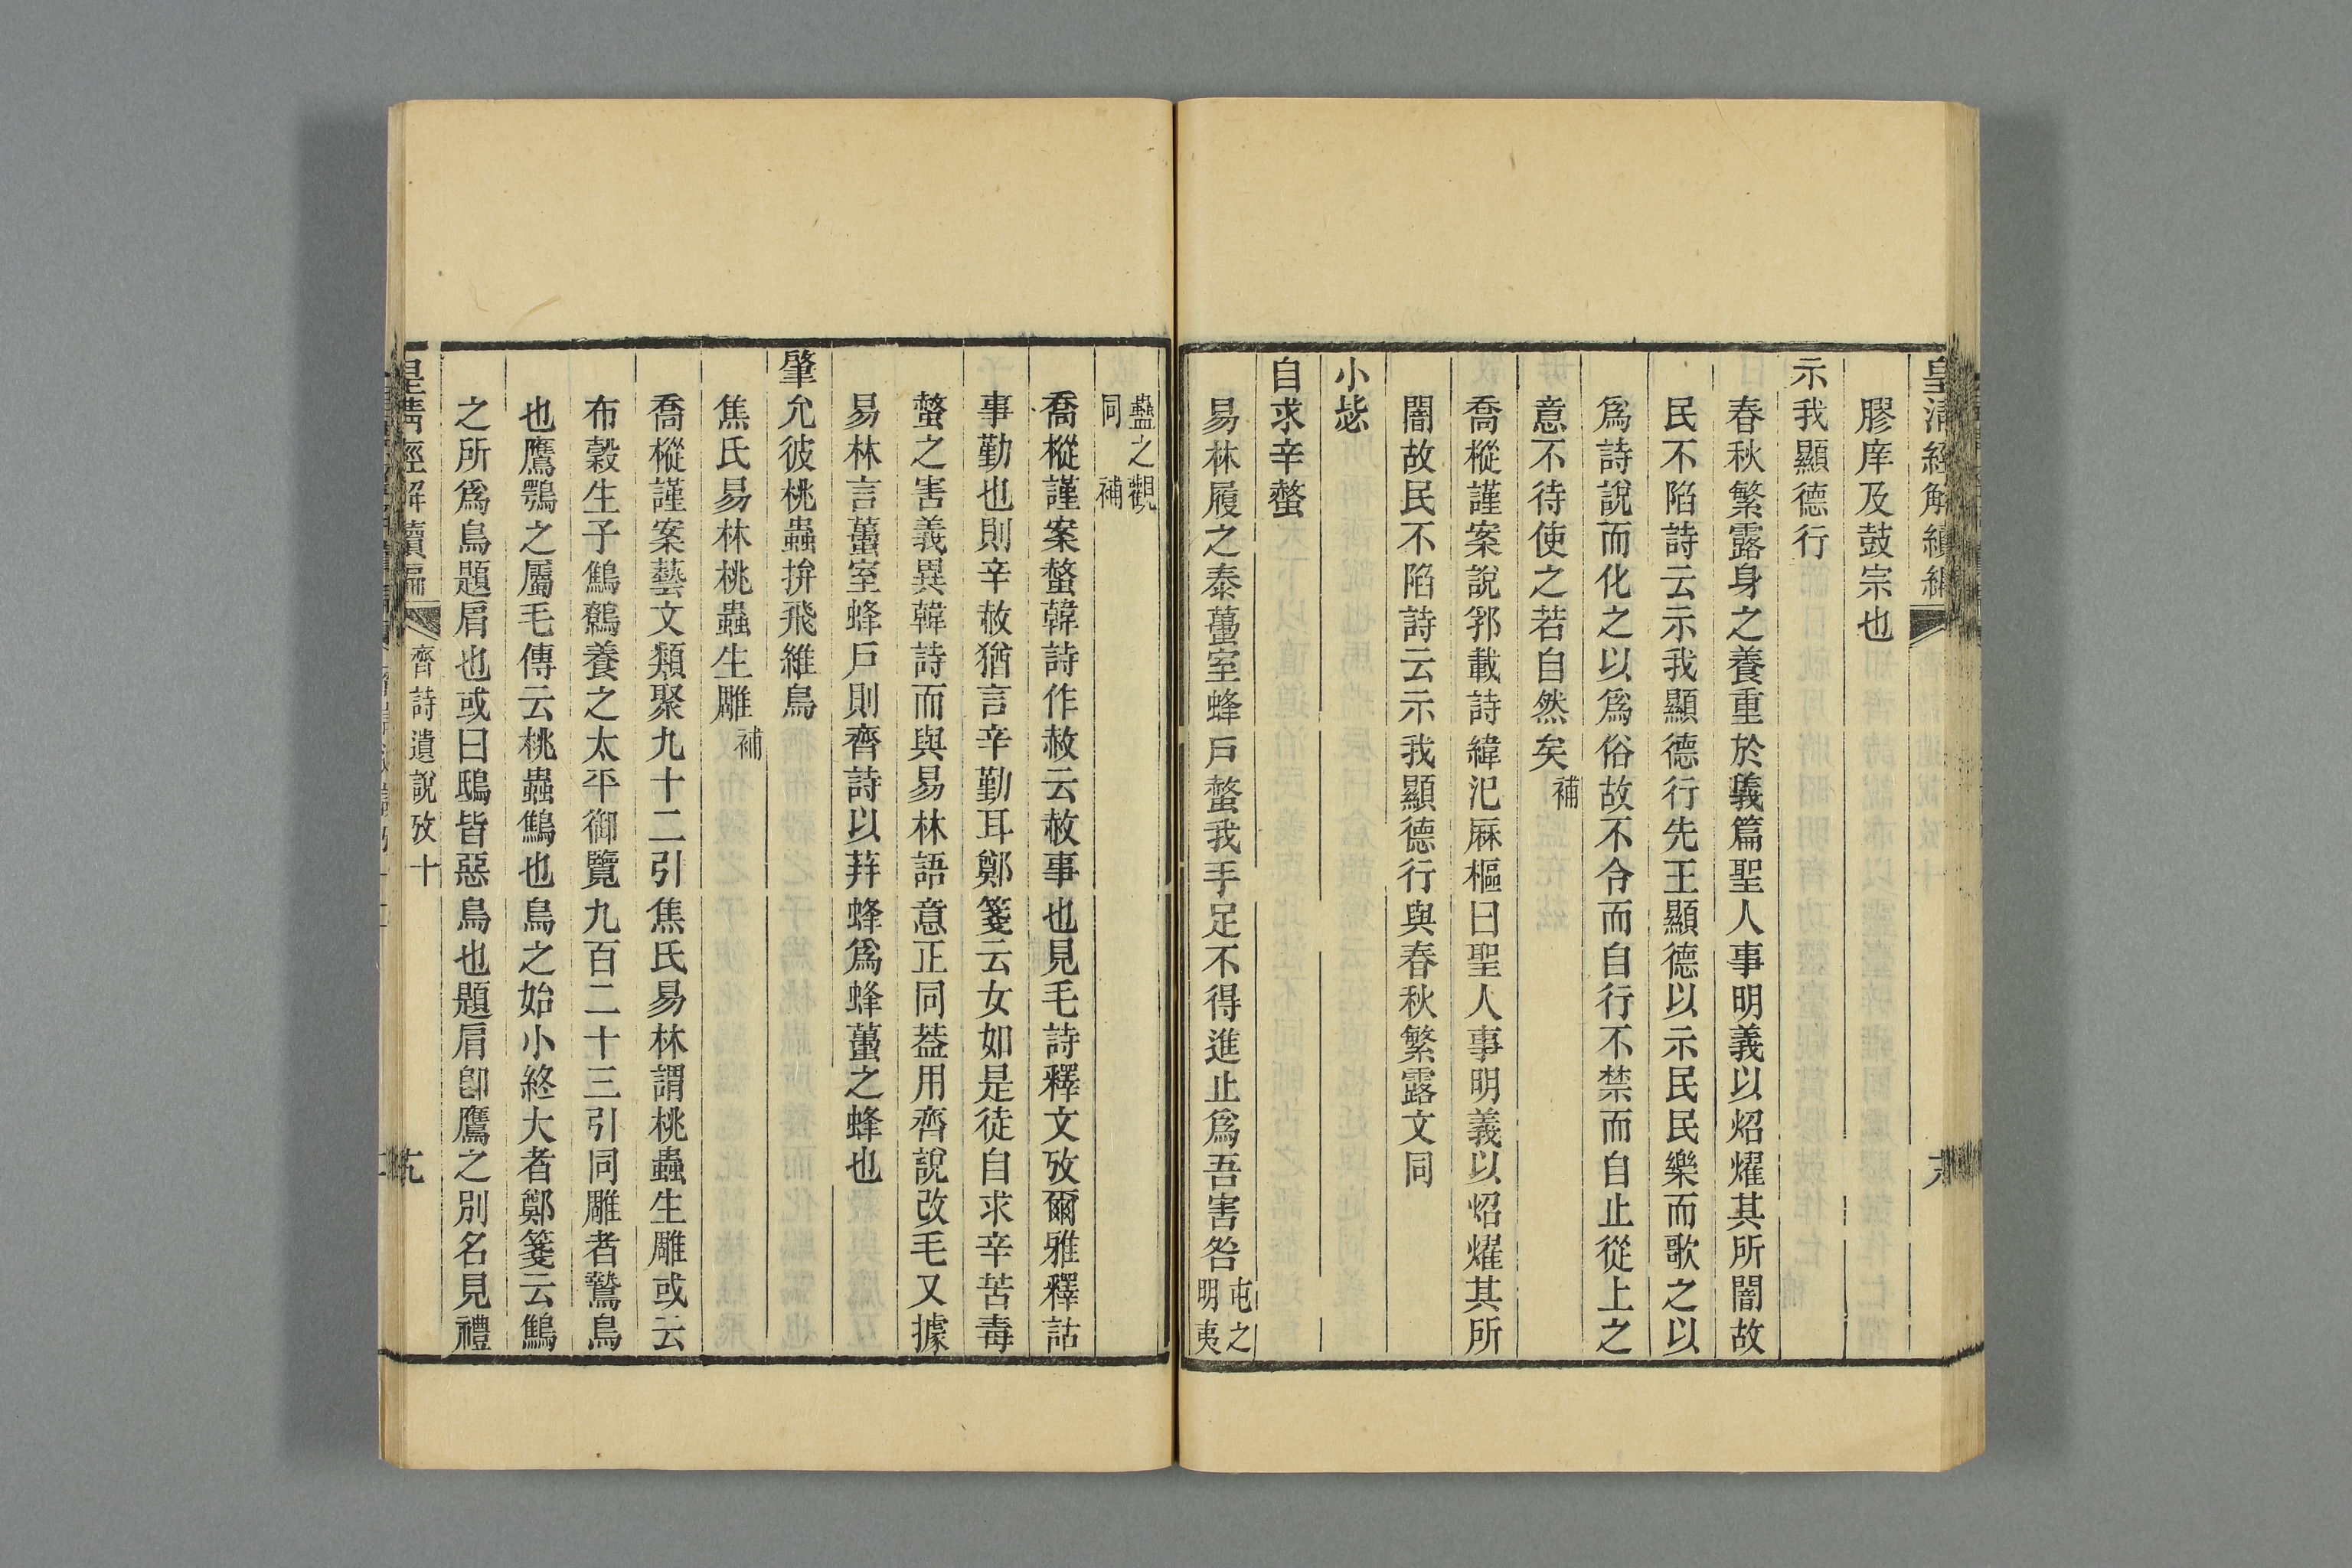 皇清經解續編
膠庠及鼓宗也
示我顯德行
春秋繁露身之養重於義篇聖人事明義以炤燿其所闇故
民不陷詩云示我顯德行先王顯德以示民民樂而歌之以
爲詩說而化之以爲俗故不令而自行不禁而自止從上之
意不待使之若自然矣補
喬樅謹案說郛載詩緯氾厤樞曰聖人事明義以炤燿其所
闇故民不陷詩云示我顯德行與春秋繁露文同
小毖
自求辛螫
易林履之泰蠆室蜂戶螫我手足不得進止爲吾害咎屯之
明夷
蠱之觀
同補
喬樅謹案螫韓詩作赦云赦事也見毛詩釋文攷爾雅釋詁
事勤也則辛赦猶言辛勤耳鄭箋云女如是徒自求辛苦毒
螫之害義異韓詩而與易林語意正同葢用齊說改毛又據
易林言蠆室蜂戶則齊詩以荓蜂爲蜂蠆之蜂也
肇允彼桃蟲拚飛維鳥
焦氏易林桃蟲生雕補
喬樅謹案藝文類聚九十二引焦氏易林謂桃蟲生雕或云
布穀生子鷦鷯養之太平御覽九百二十三引同雕者鷙鳥
也鷹鶚之屬毛傳云桃蟲鷦也鳥之始小終大者鄭箋云鷦
之所爲鳥題肩也或曰鴟皆惡鳥也題肩卽鷹之別名見禮
皇清經解續編
齊詩遺說攷十